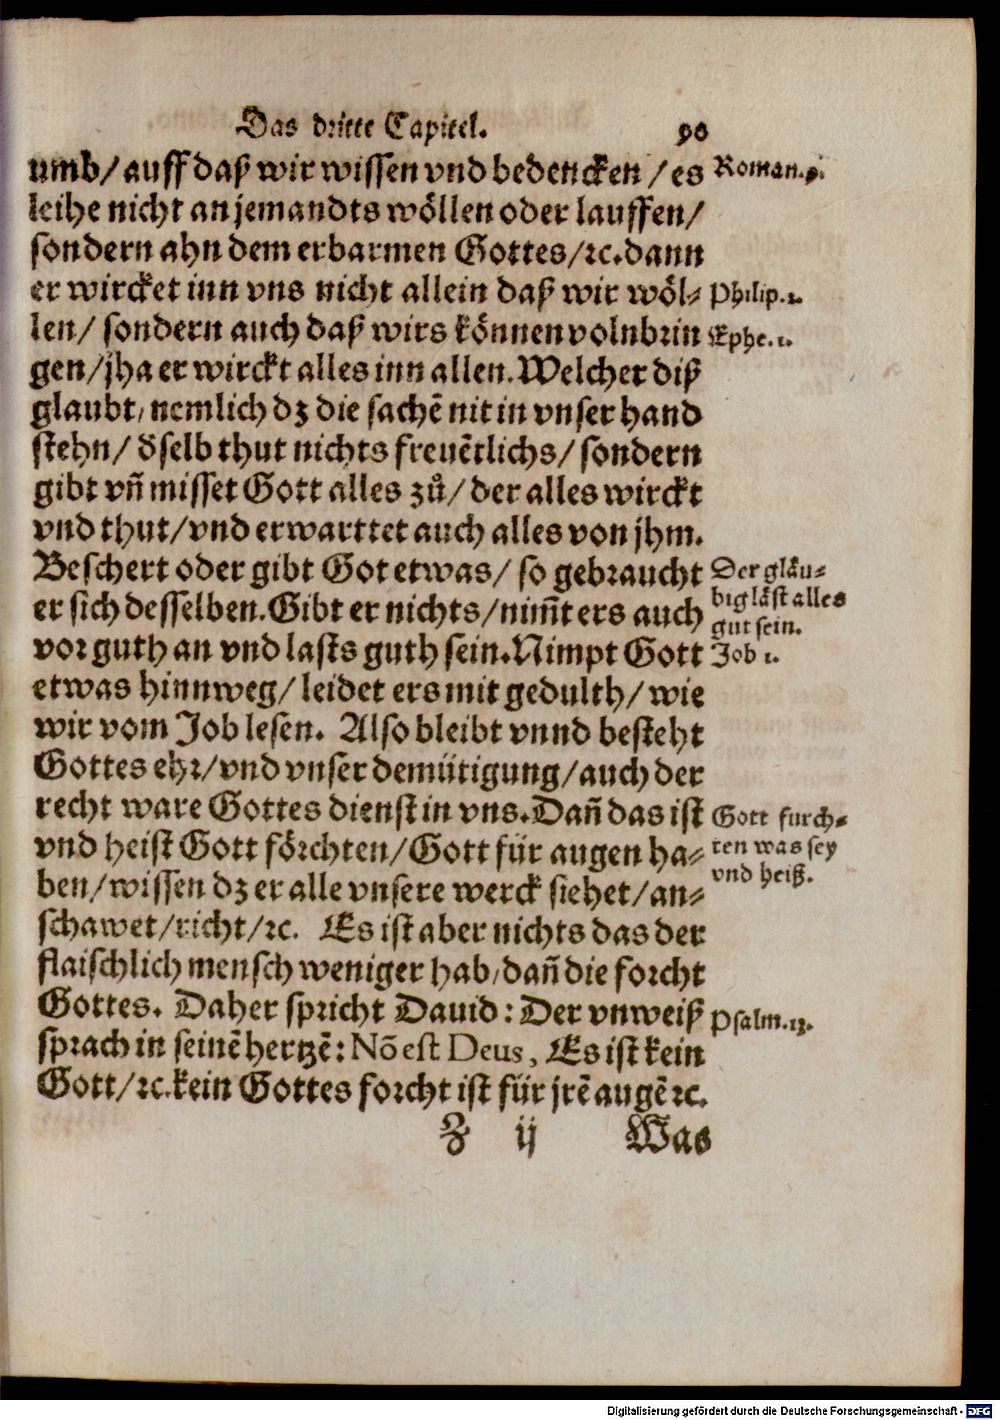 Das dritte Capitel. 90
umb/ auff daß wir wissen vnd bedencken /es
Roman.9.
leihe nicht an jemandts wöllen oder lauffen/
sondern ahn dem erbarmen Gottes/ꝛc.dann
er wircket inn vns nicht allein daß wir wöl⸗
Philip.2.
len/ sondern auch daß wirs können volnbrin
Ephe.1.
gen/jha er wirckt alles inn allen.Welcher diß
glaubt, nemlich dz die sachē nit in vnser hand
stehn/ d̄selb thut nichts freuētlichs/ sondern
gibt vn̄ misset Gott alles zů/ der alles wirckt
vnd thut/vnd erwarttet auch alles von jhm.
Beschert oder gibt Got etwas/ so gebraucht
er sich desselben.Gibt er nichts/nim̄t ers auch
vor guth an vnd lasts guth sein.Nimpt Gott
Der gläu⸗
big läst alles
gut sein.
Job 1.
etwas hinnweg/ leidet ers mit gedulth/ wie
wir vom Job lesen. Also bleibt vnnd besteht
Gottes ehr/vnd vnser demütigung/auch der
recht ware Gottes dienst in vns.Dan̄ das ist
vnd heist Gott förchten/Gott für augen ha⸗
ben/wissen dz er alle vnsere werck siehet/an⸗
Gott furch⸗
ten was sey
vnd heiß.
schawet/richt/ꝛc. Es ist aber nichts das der
flaischlich mensch weniger hab,dan̄ die forcht
Gottes. Daher spricht Dauid: Der vnweiß
Psalm.13.
sprach in seinē hertzē: Nō est Deus, Es ist kein
Gott/ꝛc.kein Gottes forcht ist für jrē augē ꝛc.
Z ij Was
Digitalisierung gefördert durch die Deutsche Forschungsgemeinschaft - DFG